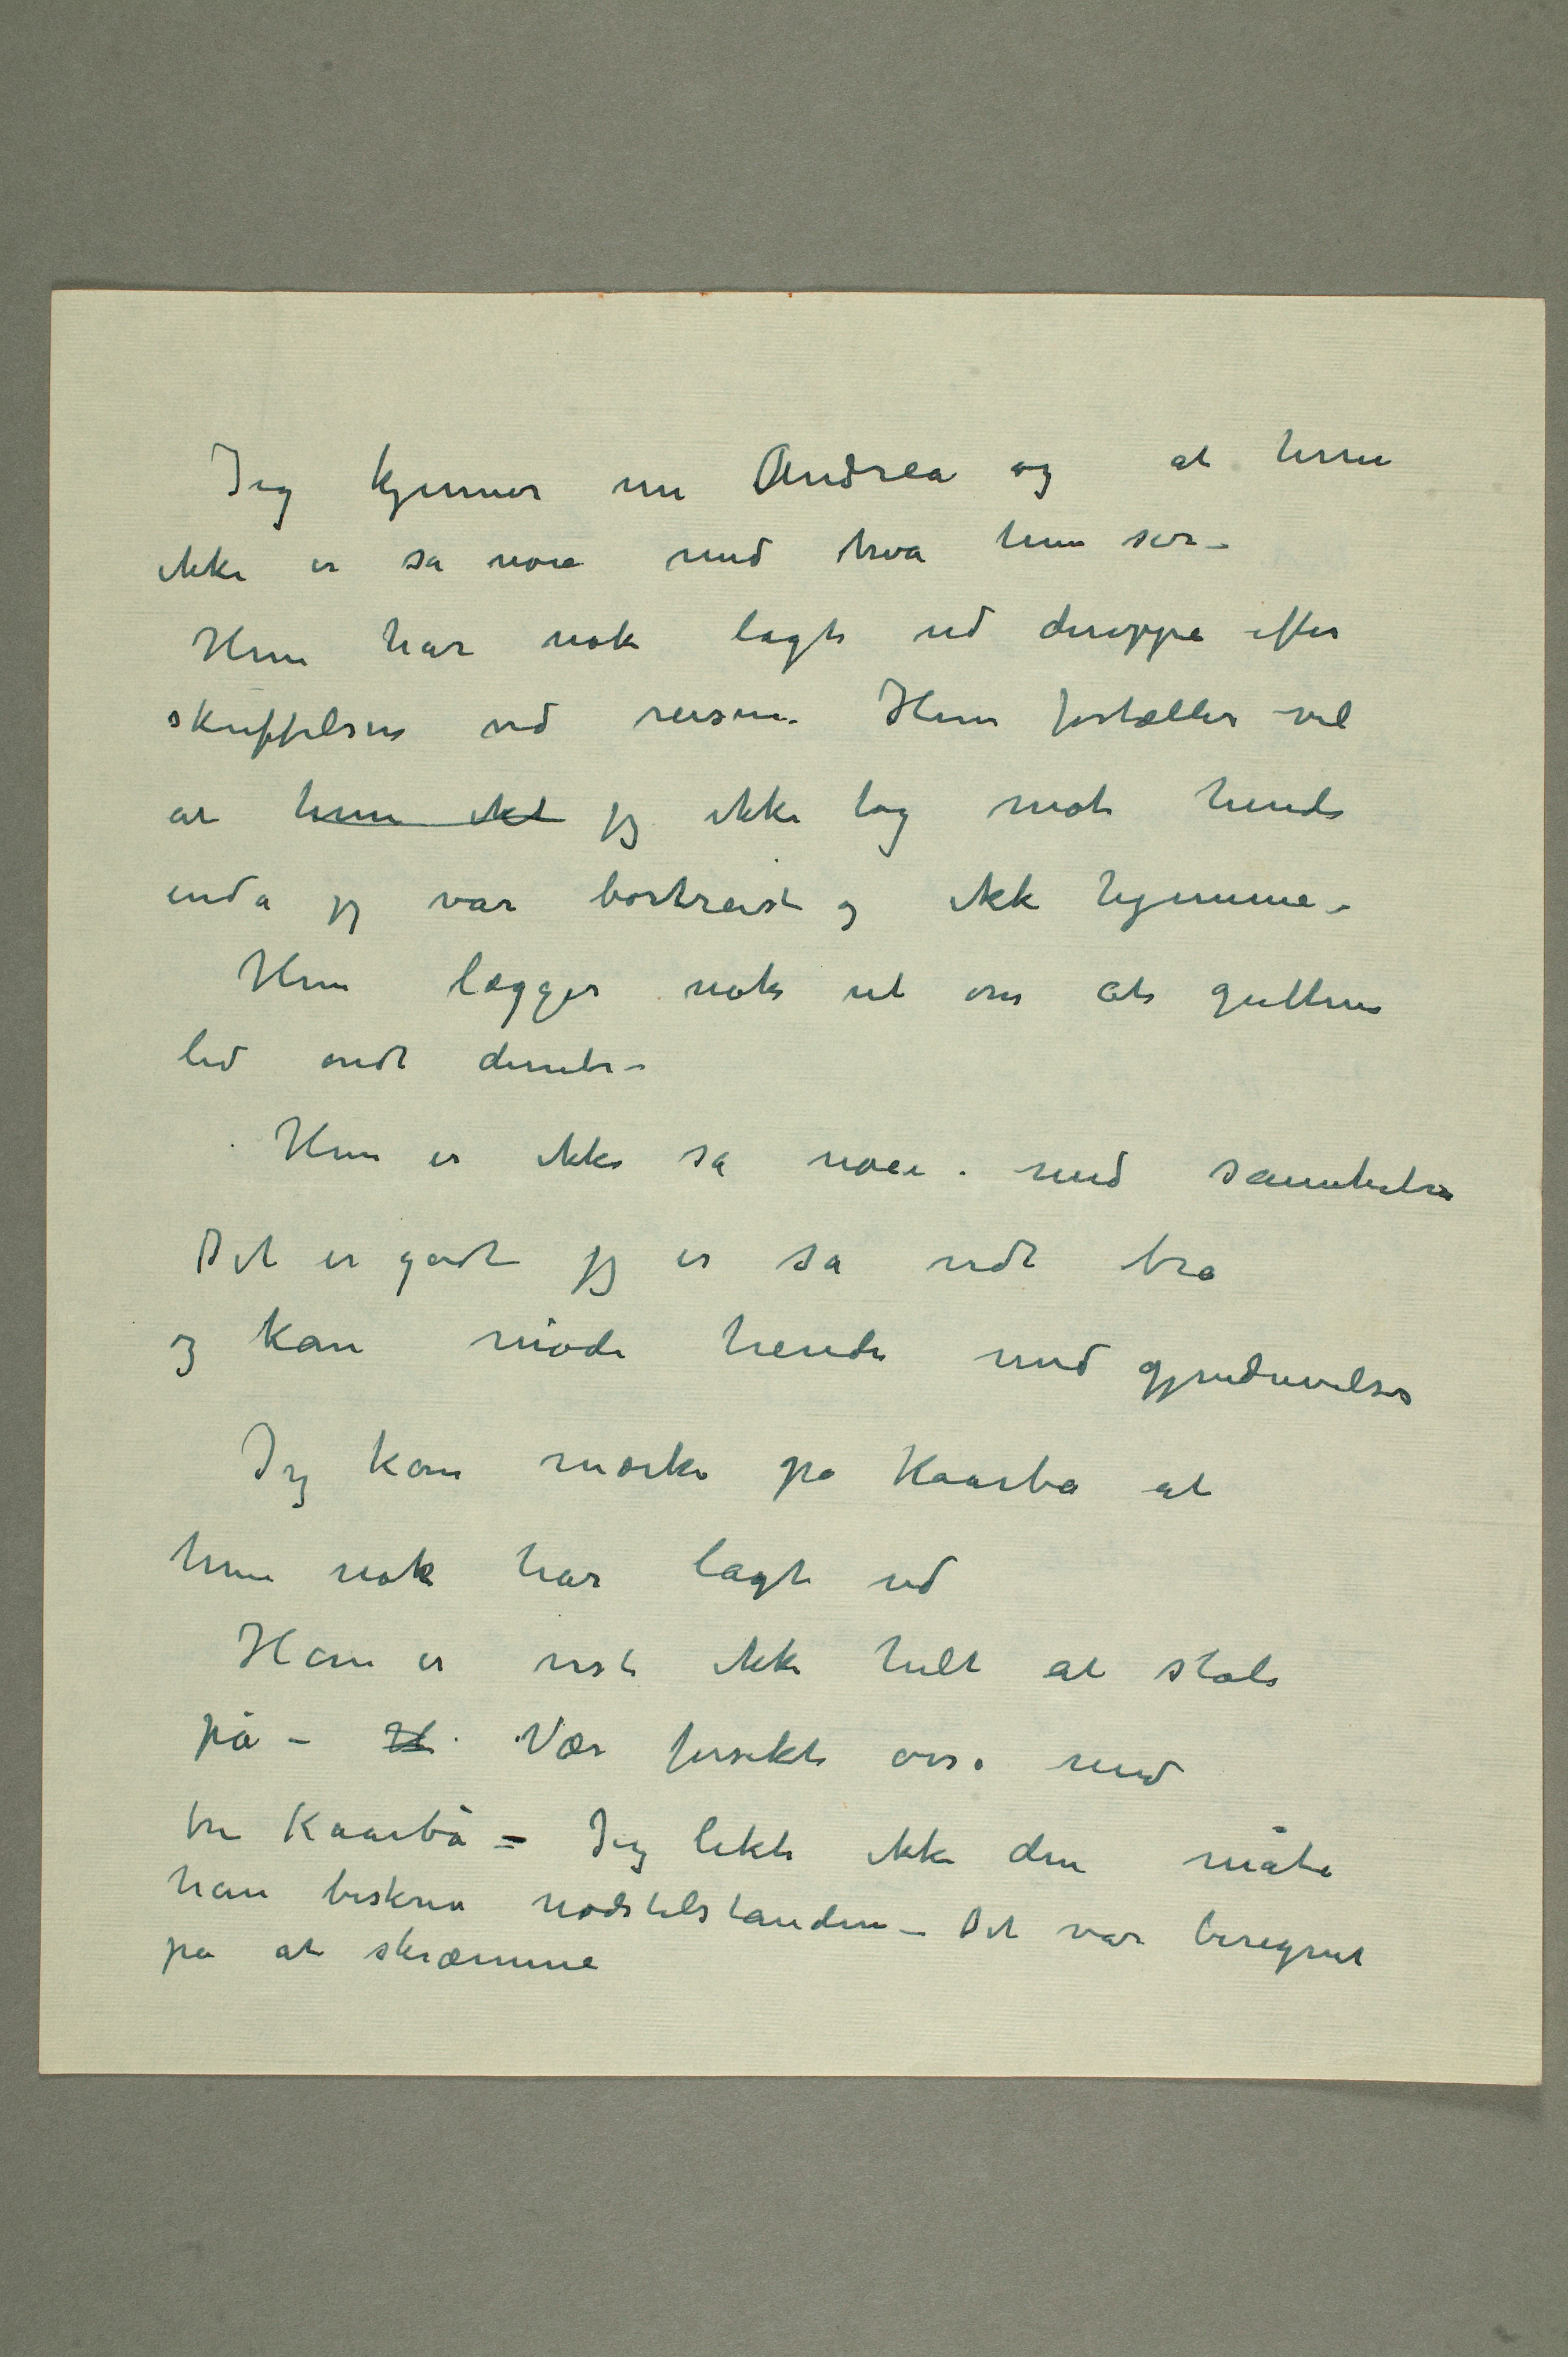 Jeg kjenner nu Andrea og at hun
ikke er så nøie med hva hun sier –
Hun har nok lagt ud deroppe efter
skuffelsen ved reisen. Hun fortæller vel
at hun ikke jeg ikke tog mot hende
enda jeg var bortreist og ikke hjemme –
Hun lægger nok ut om at gutten
led ondt dernede –
Hun er ikke så nøie med sannheten
Det er godt jeg er så vidt bra
og kan møde hende med gjenduivelser
Jeg kan mærke på Kaarbø at
hun nok har lagt ud
Han er vist ikke helt at stole
på – H Vær forsiktig også med
br Kaarbø – Jeg likte ikke den måte
han beskrev nødstilstanden – Det var beregnet
på at skræmme